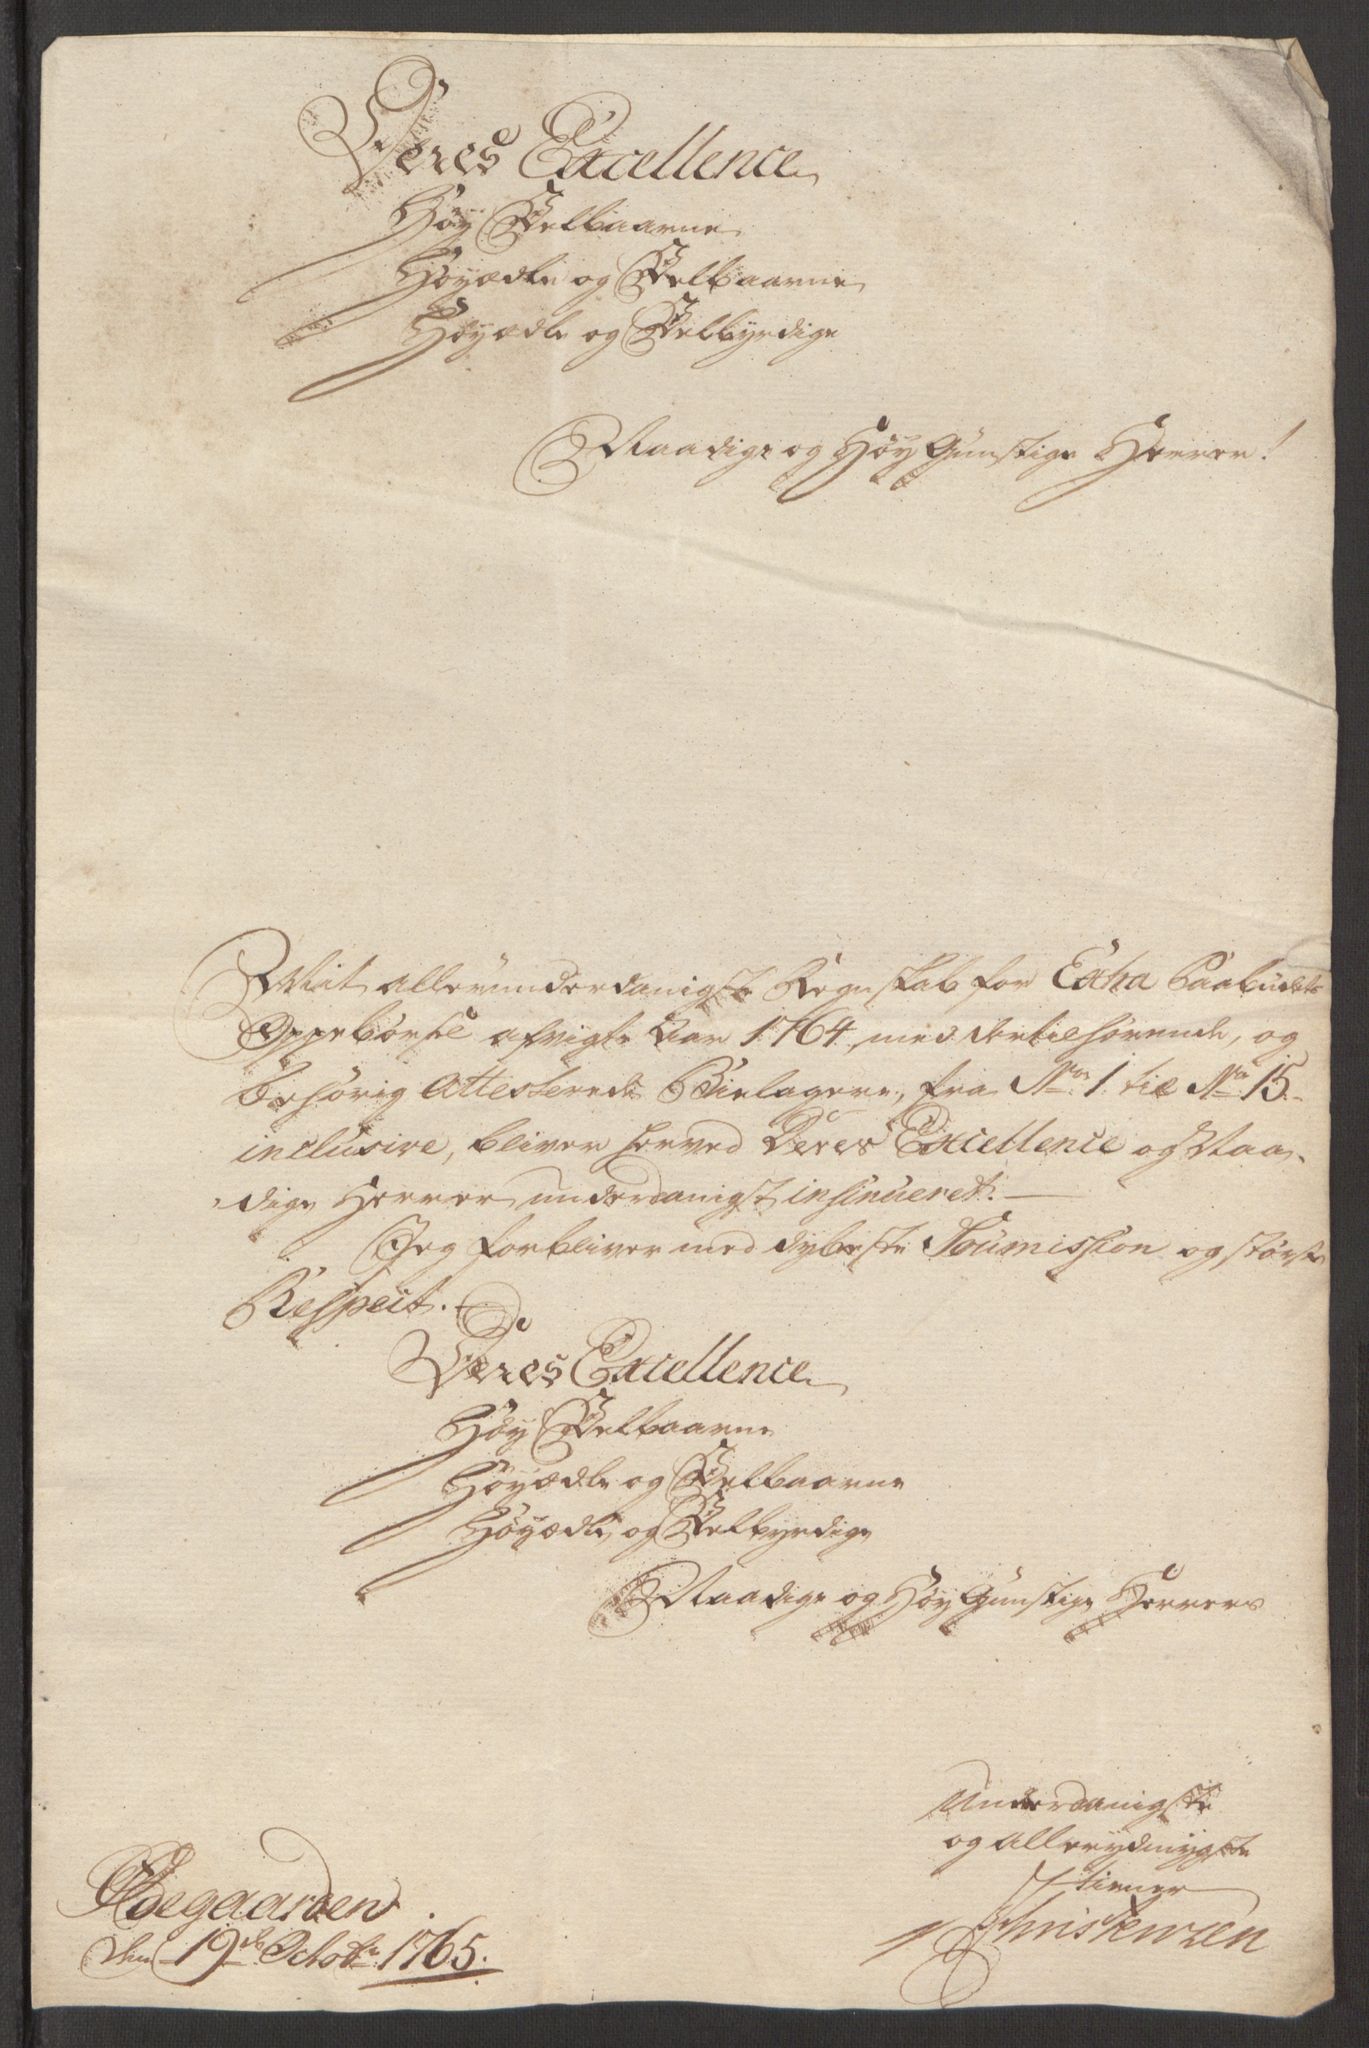 Deres Excellence
Høy Velbaarne
Høyædle og Velbaarne
Høyædle og Velbyrdige
Naadige og Høy Gunstige Herrer!
Mit allerunderdanigste Regnskab for Extra Paabudets
Oppebørsel afvigte Aar 1764, med dertilhørende, og
behørig Attesterede Bielagere, fra No. 1 til No. 15
inclusive, bliver herved Deres Excellence og Naa-
dige Herrer underdanigst insinueret.
Jeg forbliver med dybeste Soumission og største
Respect.
Deres Excellence
Høy Velbaarne
Høyædle og Velbaarne
Høyædle og Velbyrdige
Naadige og Høy Gunstige Herrers
Underdanigste
og allerydmygste
tiener
Christensen
den 19de Octobr 1765.